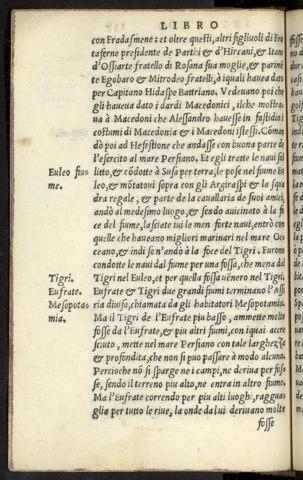 LIBRO
con Fradasmene: et oltre questi, altri figliuoli di Fra
taferne presidente de Parthi & d'Hircani, & Itane
d'Ossiarte fratello di Rosana sua moglie, & parimē
te Egobaro & Mitrodeo fratelli, à i quali hauea dato
per Capitano Hidaspe Battriano. Vedeuano poi che
gli haueua dato i dardi Macedonici, ilche mostra
ua à Macedoni che Alessandro hauesse in fastidio i
costumi di Macedonia & i Macedoni istessi. Cōman
dò poi ad Hefestione che andasse con buona parte de
l'esercito al mare Persiano. Et egli tratte le naui sul
Euleo fiu
me.
litto, & cōdotte à Susa per terra, le pose nel fiume Eu
leo, & mōtatoui sopra con gli Argiraspi & la squa
dra regale, & parte de la cauallaria de suoi amici,
andò al medesimo luogo, & sendo auicinato à la fo
ce del fiume, lasciate iui le men forte naui, entrò con
quelle che haueano migliori marinari nel mare Oc
ceano, & indi se n'andò à la foce del Tigri. Eurono
condotte le naui dal fiume per una fossa, che mena dal
Tigri.
Eufrate.
Mesopota
mia.
Tigri nel Euleo, et per quella fossa uēnero nel Tigri.
Eufrate & Tigri due grandi fiumi terminano l'Assi
ria diuisa, chiamata da gli habitatori Mesopotamia.
Ma il Tigri de l'Eufrate piu basso, ammette molte
fosse da l'Eufrate, & piu altri fiumi, con iquai accre
sciuto, mette nel mare Persiano con tale larghezza
& profondita, che non si puo passare à modo alcuno.
Percioche nō si sparge ne i campi, ne deriua per fos
se, sendo il terreno piu alto, ne entra in altro fiume.
Ma l'Eufrate correndo per piu alti luoghi, raggua
glia per tutto le riue, la onde da lui deriuano molte
fosse